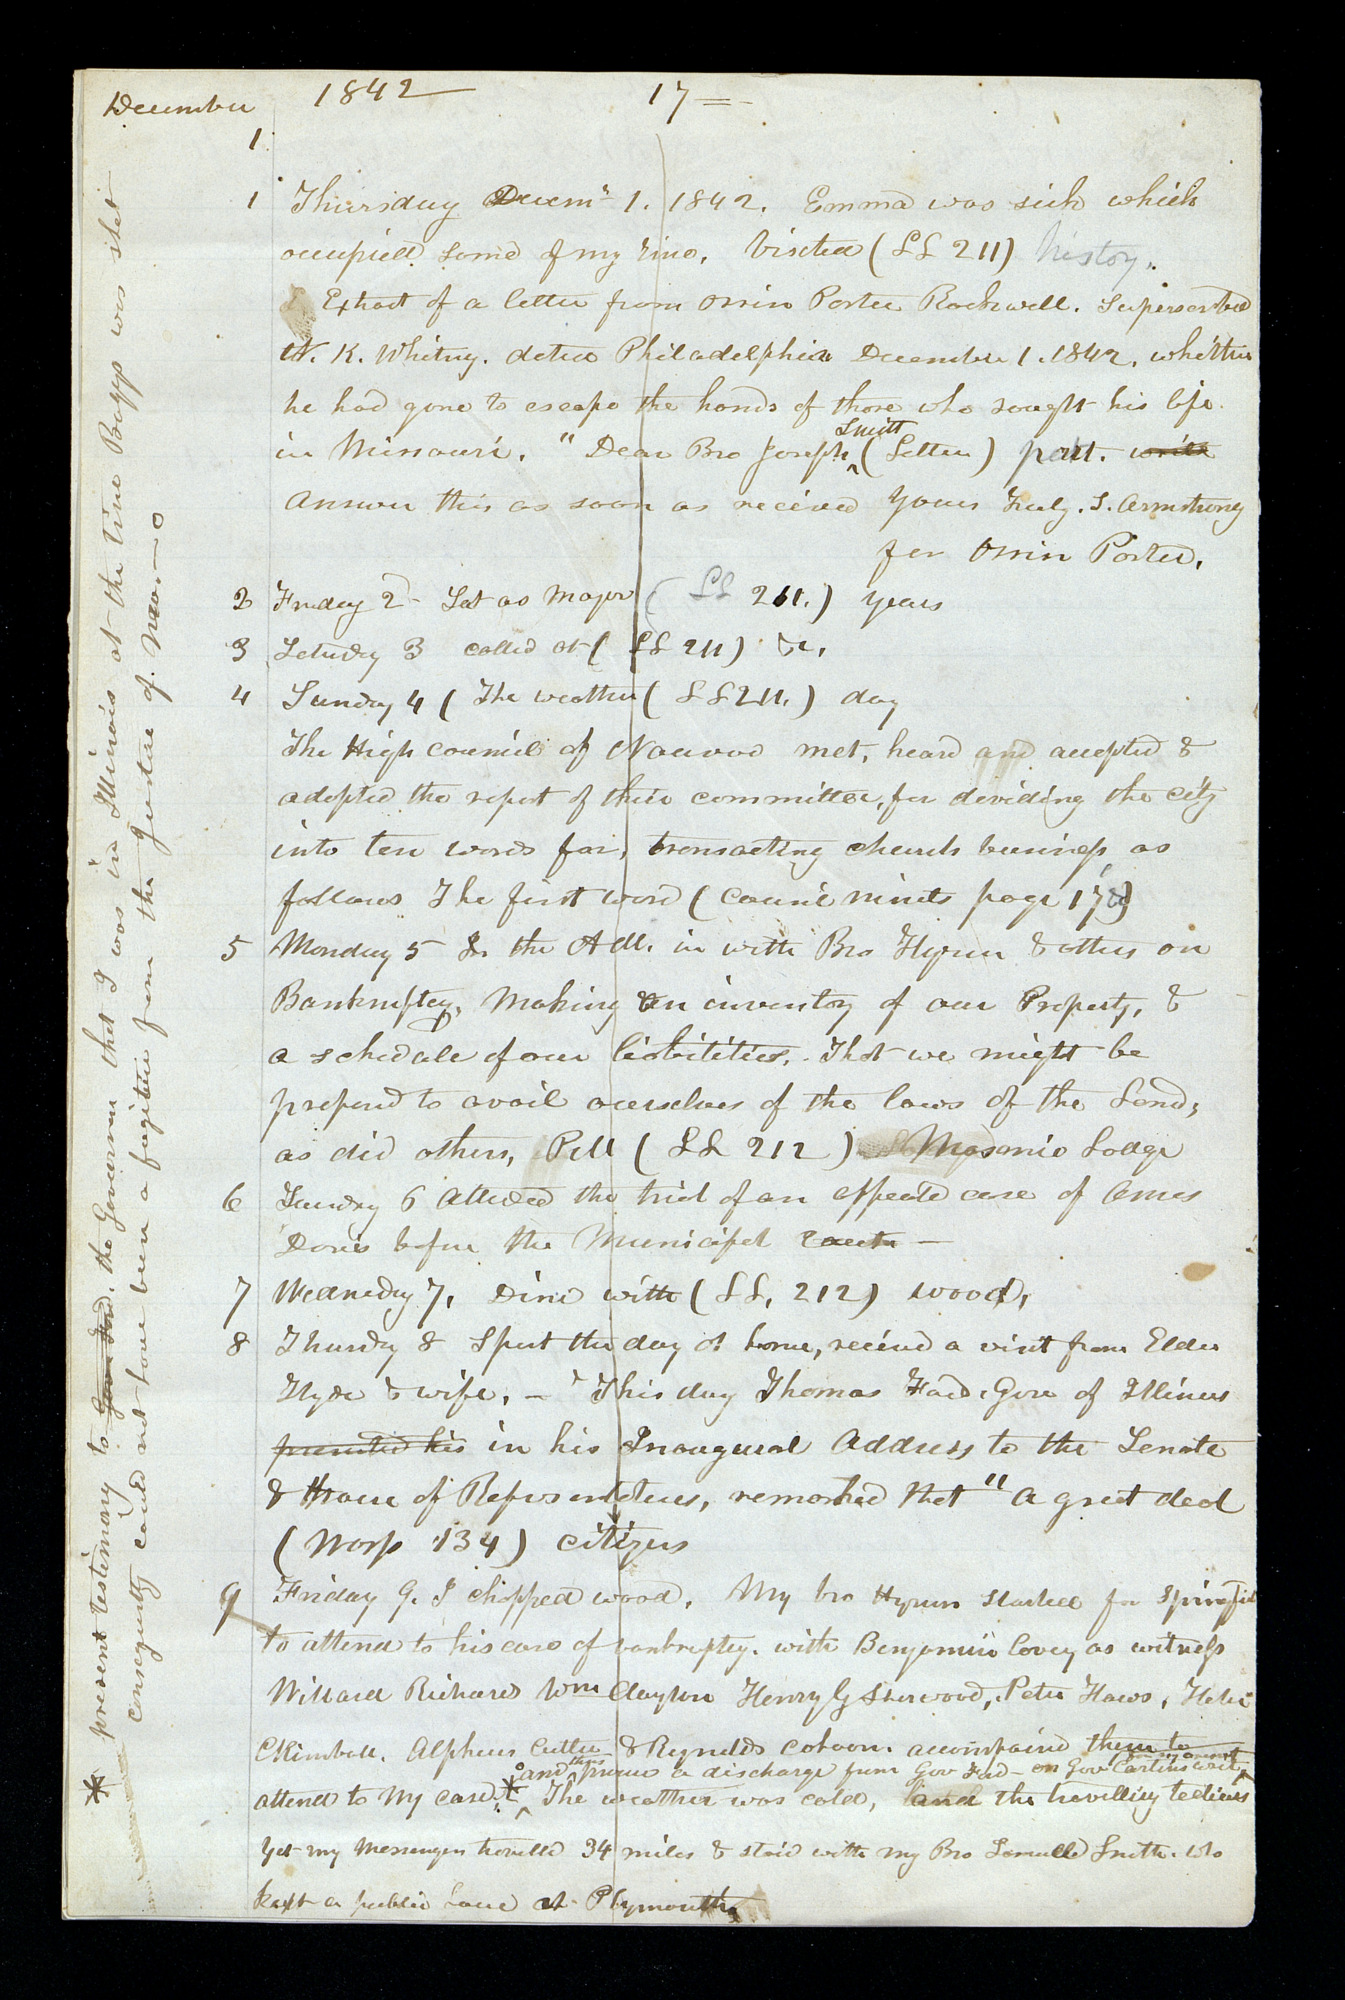 December 1842 17
1
1 Thursday Decemr 1. 1842. Emma was sick which
occupied some of my time. Visited (LL 211) history.
Extract of a letter from Orrin Porter Rockwell. Superscribed
N. K. Whitney. dated Philadelphia December 1. 1842. whither
he had gone to escape the hands of those who sought his life
in Missouri. "Dear Bro Joseph Smith (Letter) part. write
Answer this as soon as received Yours Truly. S. Armstrong
for Orrin Porter.
2 Friday 2 Sat as Mayor (LL 211.) years
3 Saturday 3 called at (LL 211) &c.
4 Sunday 4 (The weather (LL 211.) day
The High Council of Nauvoo met, heard and accepted &
adopted the report of their committee, for dividing the city
into ten wards for, transacting church business as
follows The first ward (Council minuts page 17)
5 Monday 5 In the A M. in with Bro Hyrum & others on
Bankruptcy, Making an inventory of our Property, &
a schedule of our liabilities. That we might be
prepared to avail ourselves of the laws of the Land,
as did others, P M (LL 212) Masonic Lodge
6 Tuesday 6 Attended the trial of an appeald case of Amos
Davis before the Municipal court
7 Wednesday 7, Dined with (LL, 212) wood,
8 Thursday 8 Spent the day at home, received a visit from Elder
Hyde & wife, — This day Thomas Ford, Gove of Illinois
presented his in his Inaugural Address to the Senate
& House of Representatives, remarked that "a great deal
(Wasp 134) citizens
9 Friday 9. I chopped wood. My bro Hyrum started for Springfield
to attend to his case of bankruptcy. with Benjamin Covey as witness
Willard Richards Wm Clayton Henry G Sherwood, Peter Haws, Heber
C Kimball. Alpheus Cutler & Reynolds Cahoon. accompanied them to
and thus procure a discharge from Gov Ford — on Gov Carlins writ
attend to my case * The weather was cold, and the travelling tedious
yet my Messengers travelled 34 miles & staid with my Bro Samuel Smith. who
kept a public house at Plymouth
* present testimony to Gov Ford. the Governor that I was in Illinois at the time Boggs was shot
consequently could not have been a fugitive from the justice of